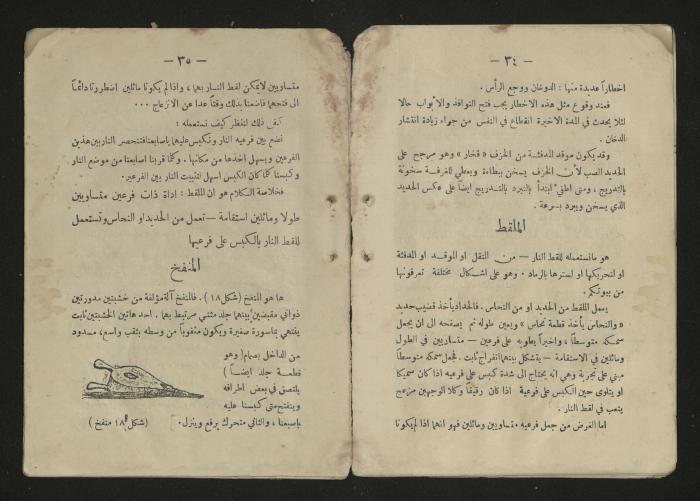 — ٣٤ —
اخطاراً عديدة منها : الدوخان ووجع الرأس .
فعند وقوع مثل هذه الاخطار يجب فتح النوافذ والابواب حالا
لئلا يحدث في المدة الاخيرة انقطاع في النفس من جراء زيادة انتشار
الدخان .
وقد يكون موقد المدفئة من الخزف « فخار » وهو مرجح على
الحديد الصب لأن الخزف يسخن ببطاءة ويعطي للغرفة سخونة
بالتدريج ، ومتى اطفيء ابتدأ بالتبرد بالتدريج ايضاً على عكس الحديد
الذي يسخن ويبرد بسرعة .
الملقط
هو مانستعمله للقط النار — من النقل او الموقد او المدفئة
او لتحريكها او لسترها بالرماد . وهو على اشكال مختلفة تعرفونها
من بيوتكم .
يعمل الملقط من الحديد او من النحاس . فالحداد يأخذ قضيب حديد
« والنحاس يأخذ قطعة نحاس » ويعين طوله ثم يصفحه الى ان يجعل
سمكه متوسطاً ، واخيراً يطويه على فرعين — متساويين في الطول
ومائلين في الاستقامة — يتشكل بينهما انفراج ثابت . فجعل سمكه متوسطاً
مبني على تجربة وهي انه يحتاج الى شدة كبس على فرعيه اذا كان سميكا
او يتلوى حين الكبس على فرعيه اذا كان رقيقاً وكلا الوجهين مزعج
يتعب في لقط النار .
اما الغرض من جعل فرعيه متساويين ومائلين فهو انهما اذا لم يكونا
— ٣٥ —
متساويين لايمكن لقط النار بهما ، واذا لم يكونا مائلين اضطررنا دائماً
الى فتحهما فاضعنا بذلك وقتاً عدا عن الانزعاج ...
كيف ذلك لننظر كيف نستعمله :
نضع بين فرعيه النار ونكبس عليهما باصابعنا فتنحصر النار بين هذين
الفرعين ويسهل اخذها من مكانها . وكلما قربنا اصابعنا من موضع النار
وكبسنا كما كان الكبس اسهل لتثبيت النار بين الفرعين .
فخلاصة الكلام هو ان الملقط : اداة ذات فرعين متساويين
طولا ومائلين استقامة — تعمل من الحديد او النحاس وتستعمل
للقط النار بالكبس على فرعيها
المنفخ
ها هو المنفخ ( شكل ١٨ ) . فالمنفخ آلة مؤلفة من خشبتين مدورتين
ذواتي مقبضين بينهما جلد مثني مرتبط بهما . احد هاتين الخشبتين ثابت
ينتهي بماسورة صغيرة ويكون مثقوباً من وسطه بثقب واسع ، مسدود
من الداخل بصمام ( وهو
قطعة جلد ايضاً )
يلتصق في بعض اطرافه
وينفتح متى كبسنا عليه
باصبعنا ، والثاني متحرك يرفع وينزل .
( شكل ١٨ منفخ )